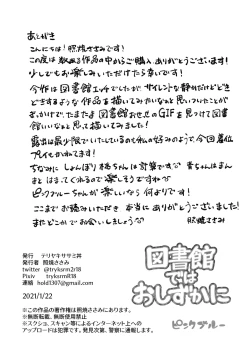 あとがき
こんにちは!照焼ささみです!
この度は数ある作品の中からご購入ありがとうございます!
少しでもお楽しみいただけたら幸いです!
今作は図書館エッチでしたが、サイレントな静かだけどどき
どきするような作品を描いてみたいなぁと思っていたことが
きっかけで、たまたま図書館お忍びのGIFを見つけて図書
館いいなぁと思って描いてみました!
露出は最少限でいたしているのも私の好みのようで、今回着位
プレイをいれてます!
ちなみにしょんぼり桃ちゃんは計算ですが 青ちゃんはまん
まとはまってくれるので楽しそうですが
ピンクブルーちゃんが楽しいなら何よりです!
ここまでお読みいただき 本当にありがとうございました!
またどこかでお会いしましょう 照焼ささみ
図書館
では
おしずかに
ピンクブルー
発行 テリヤキササミ丼
発行者 照焼ささみ
twitter @tryksrm2r18
Pixiv tryksrmlt18
連絡 hold1307@gmail.com
2021/1/22
※この作品の著作権は照焼ささみにあります。
※無断転載、無断使用禁止
※スクショ、スキャン等によるインターネット上への
アップロードは犯罪です。発見次第、警察に通報します。